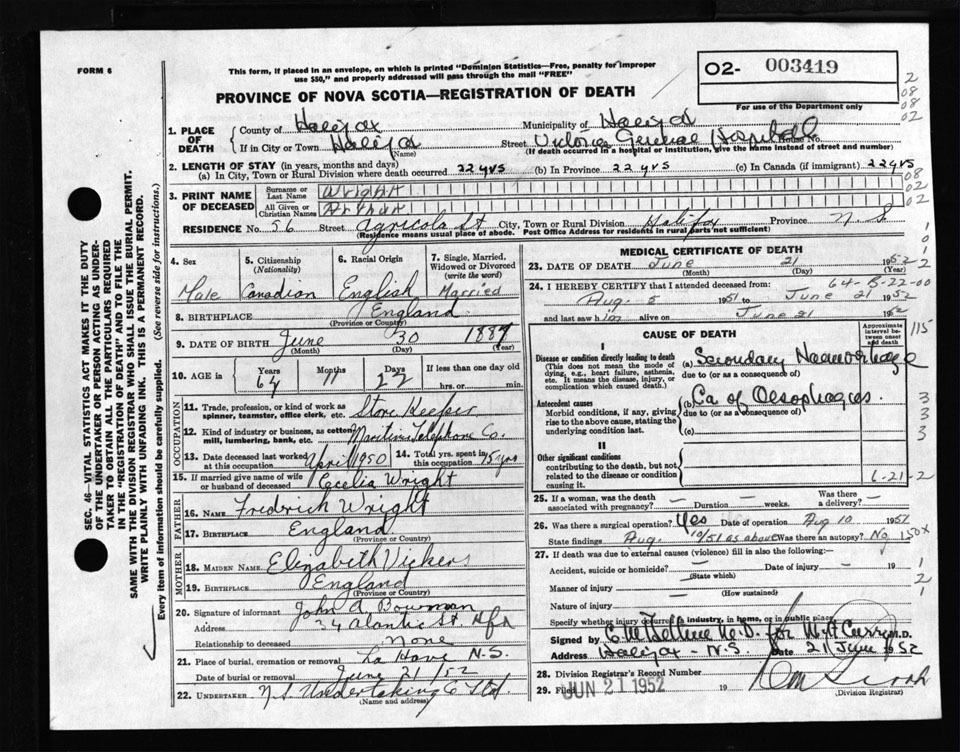 FORM 6
This form, if placed in an envelope, on which is printed "Dominion Statistics—Free, penalty for improper
use $50," and properly addressed will pass through the mail "FREE"
O2- 003419
For use of the Department only
PROVINCE OF NOVA SCOTIA—REGISTRATION OF DEATH
2
08
08
02
1. PLACE OF DEATH { County of Halifax Municipality of Halifax
If in City or Town Halifax (Name) Street Victoria General Hospital House No.
(If death occurred in a hospital or institution, give the name instead of street and number)
2. LENGTH OF STAY (in years, months and days)
(a) In City, Town or Rural Division where death occurred 22 yrs (b) In Province 22 yrs (c) In Canada (if immigrant) 22 yrs
08
02
02
3. PRINT NAME OF DECEASED { Surname or Last Name Wright
All Given or Christian Names Arthur
RESIDENCE No. 56 Street Agricola St City, Town or Rural Division Halifax Province N.S.
(Residence means usual place of abode. Post Office Address for residents in rural parts not sufficient)
4. Sex Male
5. Citizenship (Nationality) Canadian
6. Racial Origin English
7. Single, Married, Widowed or Divorced (write the word) Married
8. BIRTHPLACE England
(Province or Country)
9. DATE OF BIRTH June 30 1887
(Month) (Day) (Year)
10. AGE in { Years 64 Months 11 Days 22 If less than one day old
hrs. or min.
OCCUPATION
11. Trade, profession, or kind of work as spinner, teamster, office clerk, etc. Store Keeper
12. Kind of industry or business, as cotton mill, lumbering, bank, etc. Maritime Telephone Co.
13. Date deceased last worked at this occupation April 1950 14. Total yrs. spent in this occupation 15 yrs
15. If married give name of wife or husband of deceased Cecelia Wright
FATHER
16. NAME Fredrick Wright
17. BIRTHPLACE England
(Province or Country)
MOTHER
18. MAIDEN NAME Elizabeth Vickers
19. BIRTHPLACE England
(Province or Country)
20. Signature of informant John A. Bowman
Address 34 Alantic St Hfx
Relationship to deceased None
21. Place of burial, cremation or removal La Have N.S.
Date of burial or removal June 21/52
22. UNDERTAKER N.S. Undertaking Co Ltd.
MEDICAL CERTIFICATE OF DEATH
23. DATE OF DEATH June 21 1952
(Month) (Day) (Year)
24. I HEREBY CERTIFY that I attended deceased from: 64-B-22-00
Aug. 5 1951 to June 21 1952
and last saw him alive on June 21 1952
CAUSE OF DEATH
Approximate interval between onset and death
115
I
Disease or condition directly leading to death
(This does not mean the mode of dying, e.g., heart failure, asthma, etc. It means the disease, injury, or complication which caused death.)
(a) Secondary Haemorrhage
due to (or as a consequence of)
Antecedent causes
Morbid conditions, if any, giving rise to the above cause, stating the underlying condition last.
(b) Ca of Oesophagus.
due to (or as a consequence of)
(c)
3
3
3
II
Other significant conditions
contributing to the death, but not related to the disease or condition causing it.
6-21-2
25. If a woman, was the death associated with pregnancy? — Was there a delivery? —
26. Was there a surgical operation? Yes Date of operation Aug 10 1951
State findings Aug. 10/51 as above Was there an autopsy? No
150X
27. If death was due to external causes (violence) fill in also the following:—
Accident, suicide or homicide? — Date of injury — 19
(State which)
Manner of injury —
(How sustained)
Nature of injury —
1
2
1
Specify whether injury occurred in industry, in home, or in public place.
Signed by M.D. for W. A. Curry M.D.
Address Halifax - N.S. Date 21 June 1952
28. Division Registrar's Record Number
29. Filed JUN 21 1952 19
(Division Registrar)
SEC. 46—VITAL STATISTICS ACT MAKES IT THE DUTY
OF THE UNDERTAKER OR PERSON ACTING AS UNDER-
TAKER TO OBTAIN ALL THE PARTICULARS REQUIRED
IN THE "REGISTRATION OF DEATH" AND TO FILE THE
SAME WITH THE DIVISION REGISTRAR WHO SHALL ISSUE THE BURIAL PERMIT.
WRITE PLAINLY WITH UNFADING INK. THIS IS A PERMANENT RECORD.
Every item of information should be carefully supplied. (See reverse side for instructions.)